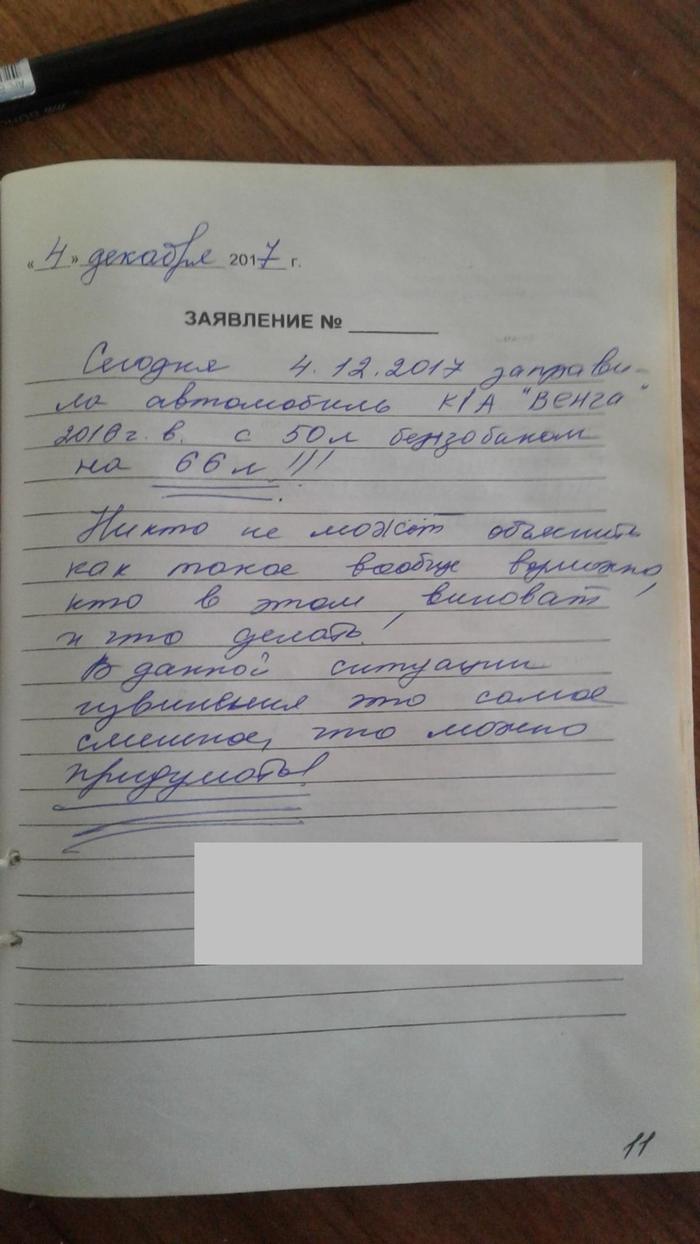 «4» декабря 2017 г.
ЗАЯВЛЕНИЕ № ________
Сегодня 4.12.2017 заправи-
ла автомобиль КИА "Венга"
2016 г. в. с 50 л бензобаком
на 66 л !!!
Никто не может объяснить
как такое вообще возможно,
кто в этом виноват
и что делать!
В данной ситуации
извинения это самое
смешное, что можно
придумать!
11